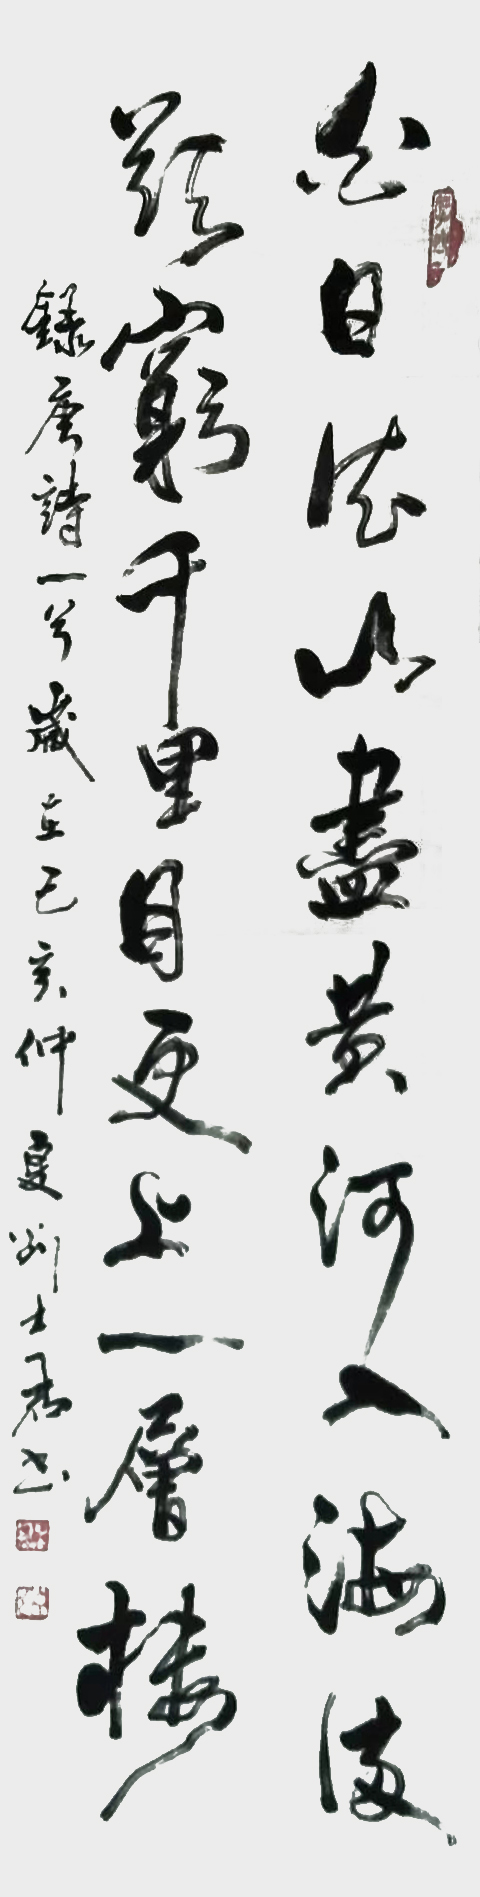 白日依山盡黄河入海流
欲窮千里目更上一層樓
錄唐詩一首歲在己亥仲夏劉士書